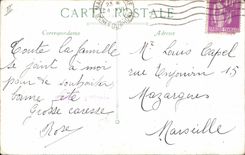 CARTE POSTALE
Correspondance
Adresse
Toute la famille
se joint à moi
pour te souhaiter
bonne fête
Grosse caresse
Rose
Mr Louis Capel
rue 15
Mazargues
Marseille